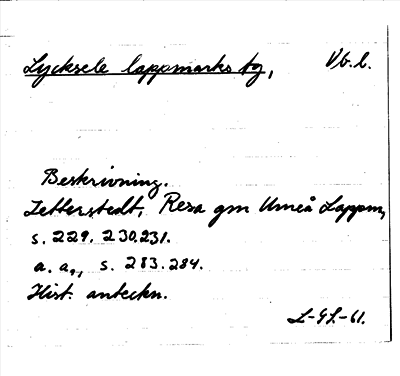 Lycksele lappmarks tg, Vb. l.
Beskrivning.
Zetterstedt, Resa gm Umeå Lappm,
s. 229. 230. 231.
a. a., s. 283. 284.
Hist. anteckn.
L-GL-61.